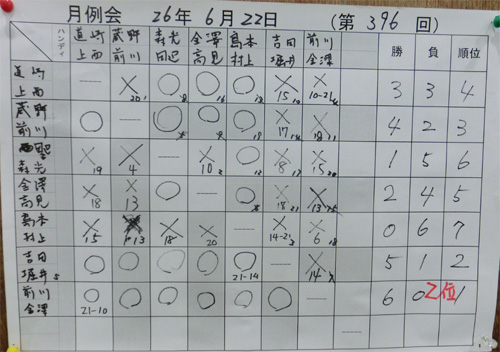 月例会 26年 6月22日 (第 396 回)
ハンディ 道﨑 上西 蔵野 前川 森光 田辺 金澤 高見 島本 村上 吉田 堀井 前川 金澤 勝 負 順位
道﨑 上西 × 20 ○ ○ ○ × 15 × 10-21 3 3 4
蔵野 前川 ○ ○ ○ ○ × 17 × 18 4 2 3
森光 × 19 × 4 × 10 ○ × 8 × 15 1 5 6
金澤 高見 × 18 × 13 ○ ○ × 18 × 13 2 4 5
島本 村上 × 15 × 13 × 18 × 20 × 14-21 × 6 0 6 7
吉田 堀井 5 ○ ○ ○ ○ ○ 21-14 × 14 5 1 2
前川 金澤 ○ 21-10 ○ ○ ○ ○ ○ 6 0 2位 1